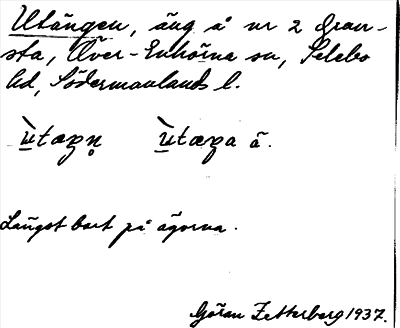 Utängen, äng å nr 2 Gran-
sta, Över-Enhörna sn, Selebo
hd, Södermanlands l.
ù̱tæŋn̥ ù̱tæŋa ä.
Längst bort på ägorna.
Göran Zetterberg 1937.